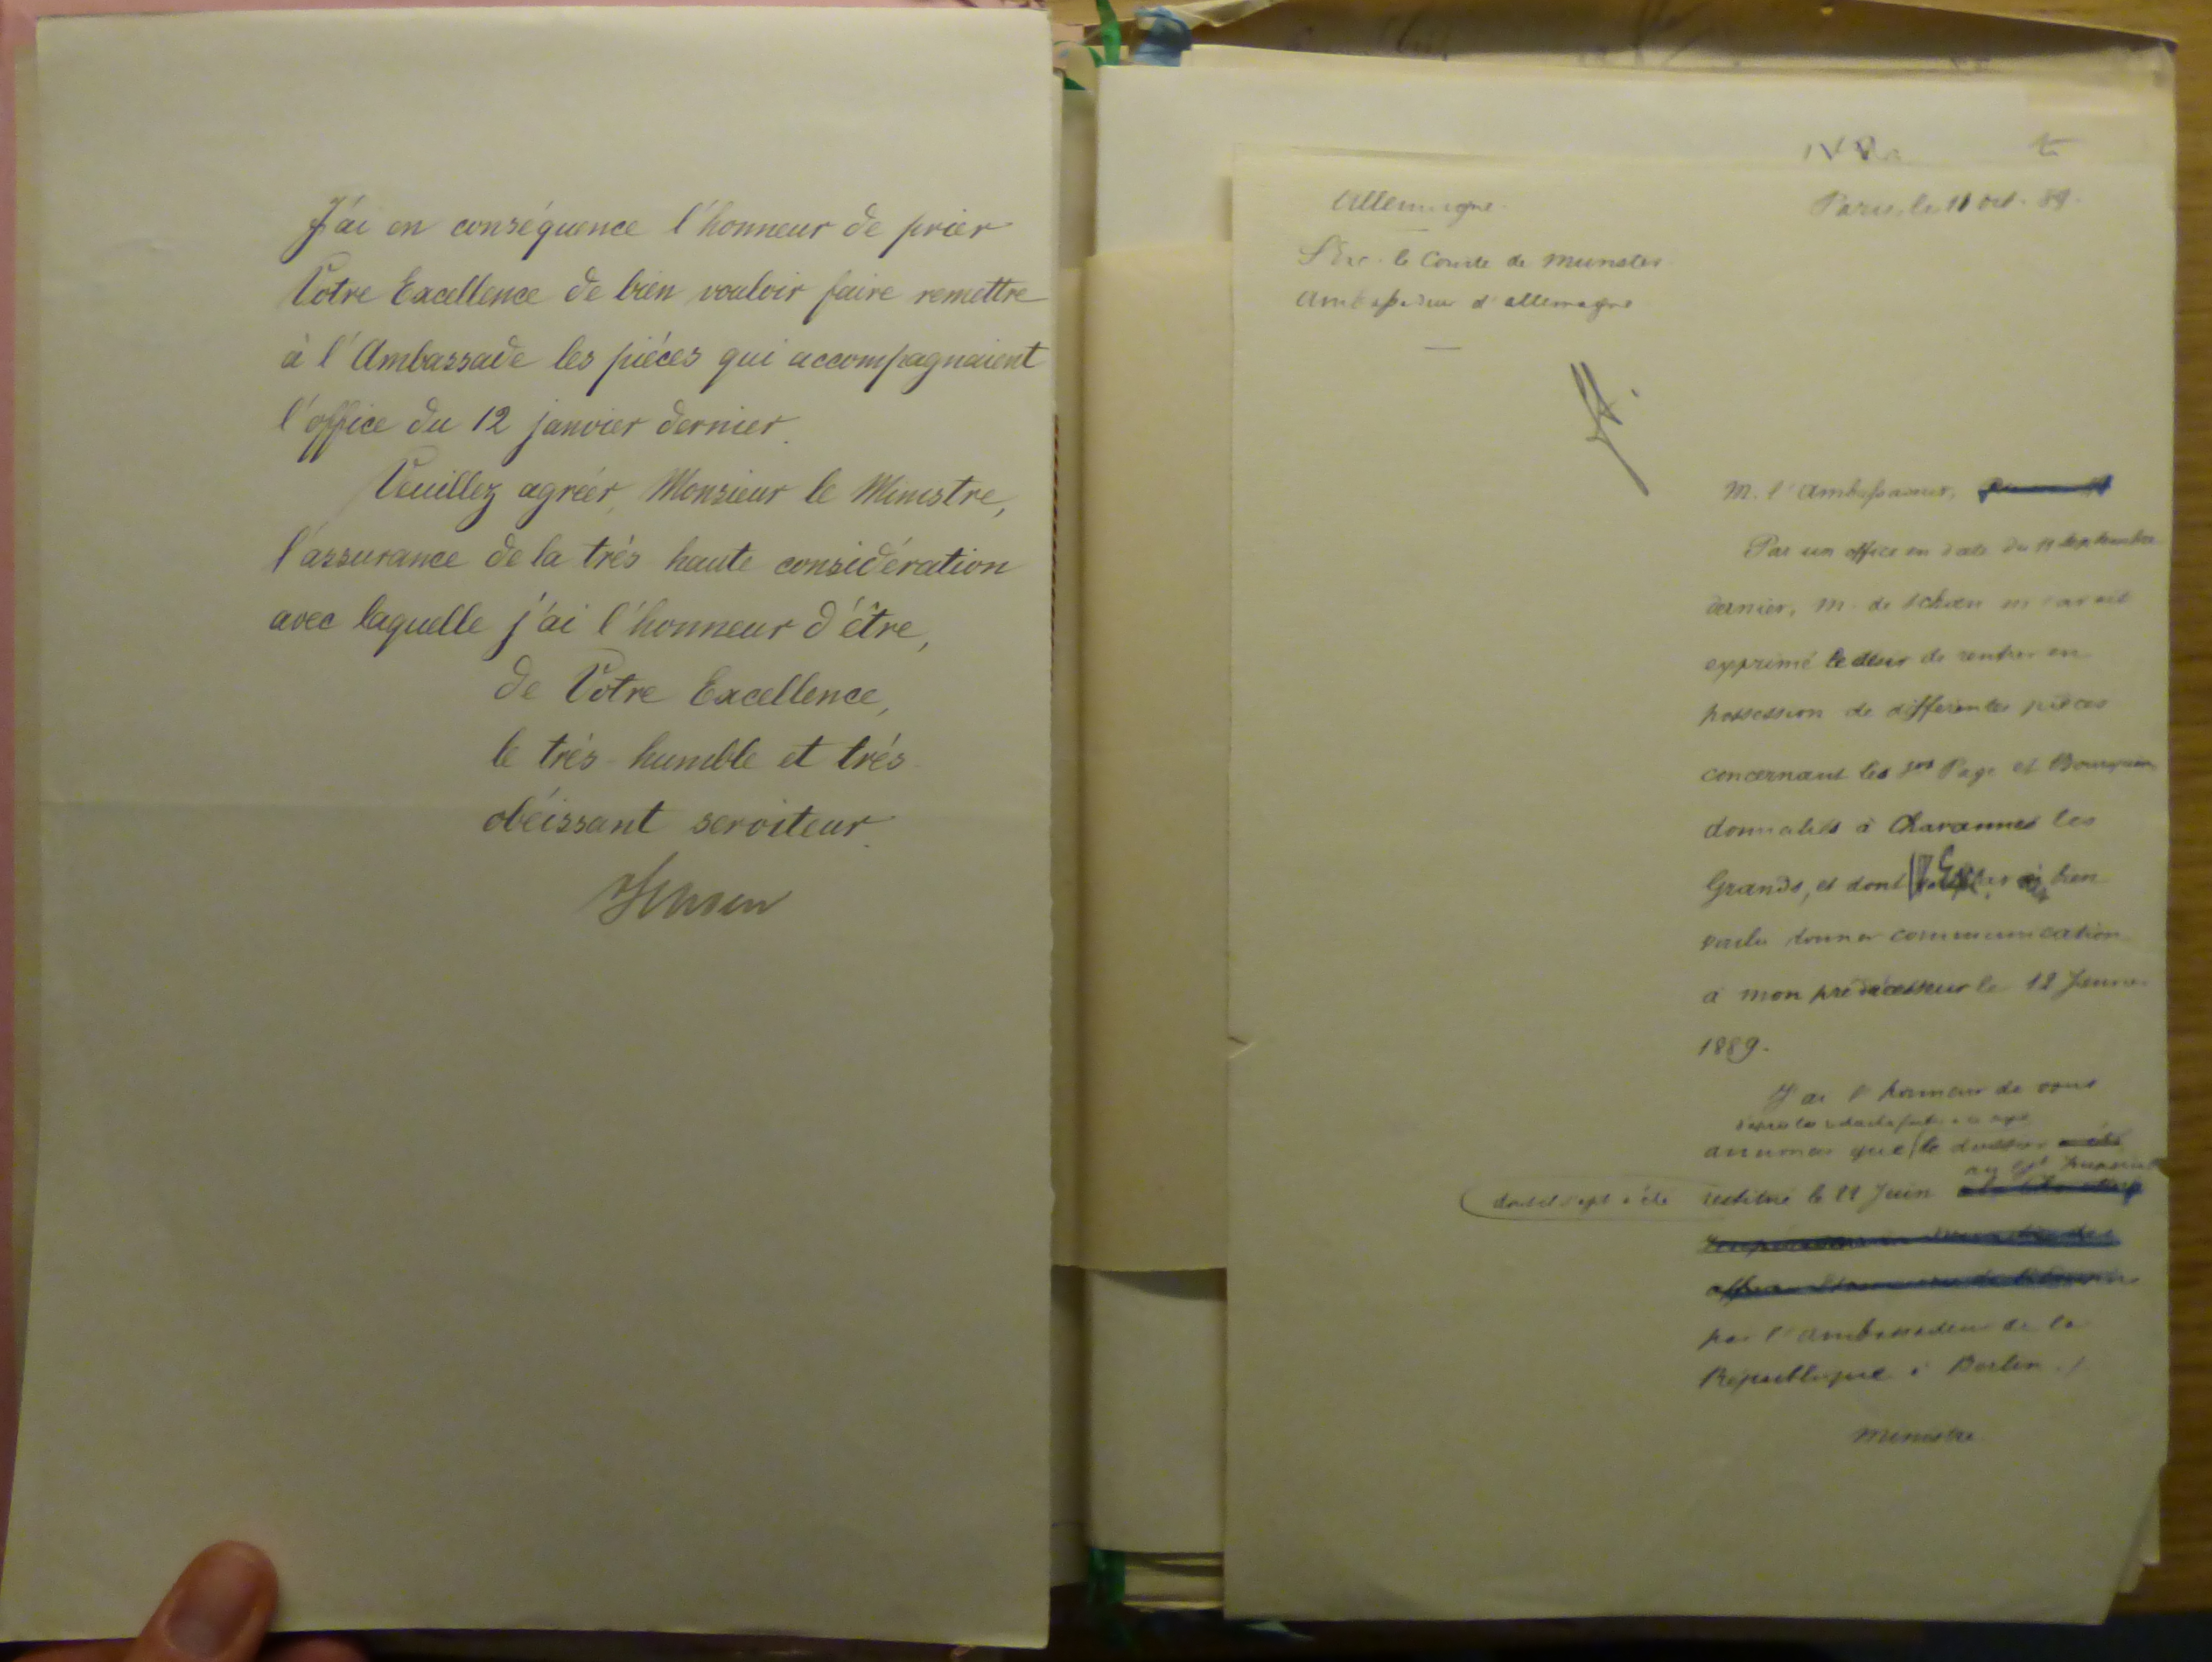 J'ai en conséquence l'honneur de prier
Votre Excellence de bien vouloir faire remettre
à l'Ambassade les pièces qui accompagnaient
l'office du 12 janvier dernier.
Veuillez agréer, Monsieur le Ministre,
l'assurance de la très haute considération
avec laquelle j'ai l'honneur d'être,
de Votre Excellence,
le très humble et très
obéissant serviteur.
Allemagne.
Paris, le 11 oct. 89.
S. Exc. le Comte de Munster
Ambassadeur d'allemagne
M. l'Ambassadeur,
Par un office en date du 11 Septembre
dernier, M. de Schoen m'avait
exprimé le désir de rentrer en
possession de différentes pièces
concernant les Srs Page et Bourquin
domiciliés à Chavannes les
Grands, et dont V. Exc. bien
voulu donner communication
à mon prédécesseur le 12 Janvier
1889.
J'ai l'honneur de vous
annoncer que le dossier
dont il s'agit a été restitué le 22 Juin
par l'ambassadeur de la
République à Berlin ./.
Ministre